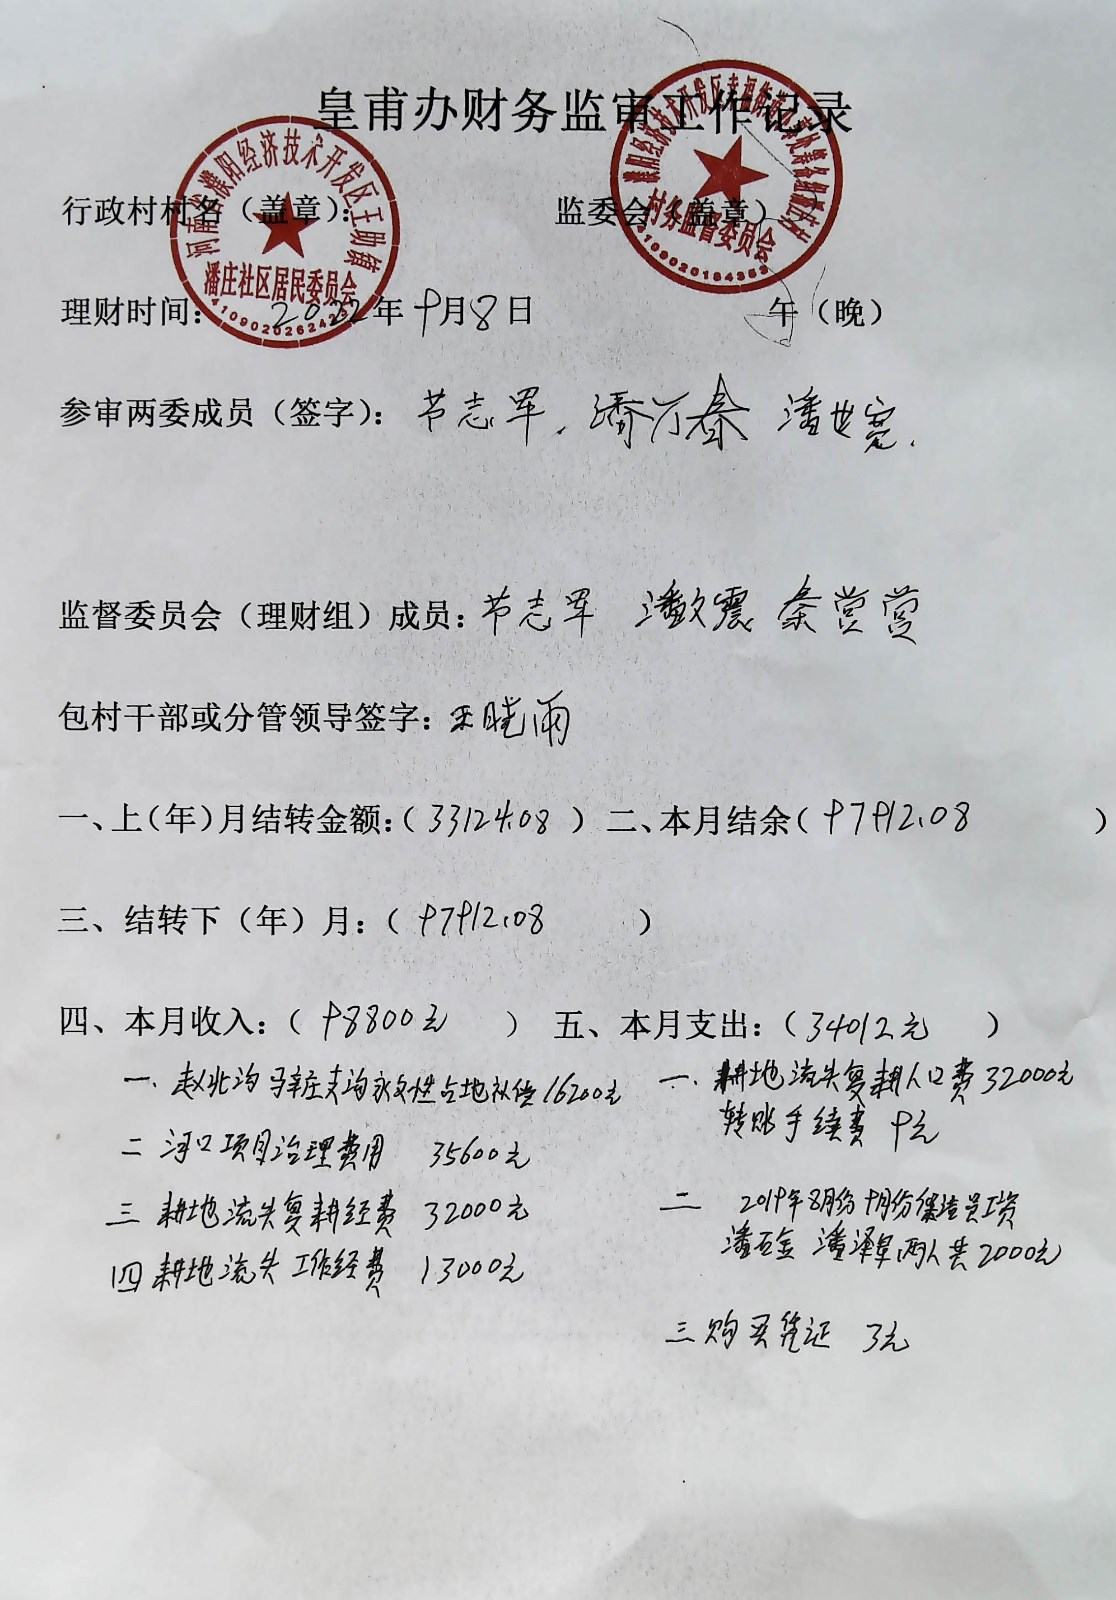 皇甫办财务监审工作记录
河南省濮阳经济技术开发区王助镇
潘庄社区居民委员会
村务监督委员会
行政村村名（盖章）： 监委会（盖章）
理财时间： 2022年9月8日 午（晚）
参审两委成员（签字）： 志军. 潘万春 潘世宽.
监督委员会（理财组）成员： 志军 潘文震 秦赏赏
包村干部或分管领导签字：王晓雨
一、上（年）月结转金额：（33124.08 ） 二、本月结余（97912.08 ）
三、结转下（年）月：（ 97912.08 ）
四、本月收入：（ 98800元 ） 五、本月支出：（34012元 ）
一. 赵北沟马辛庄支沟永久性占地补偿16200元 一. 耕地流失复耕人口费32000元
转账手续费 9元
二 河口项目治理费用 35600元
三 耕地流失复耕经费 32000元 二 2019年8月份9月份保洁员工资
四 耕地流失工作经费 13000元 潘石金 潘泽阜两人共2000元
三购买凭证 3元